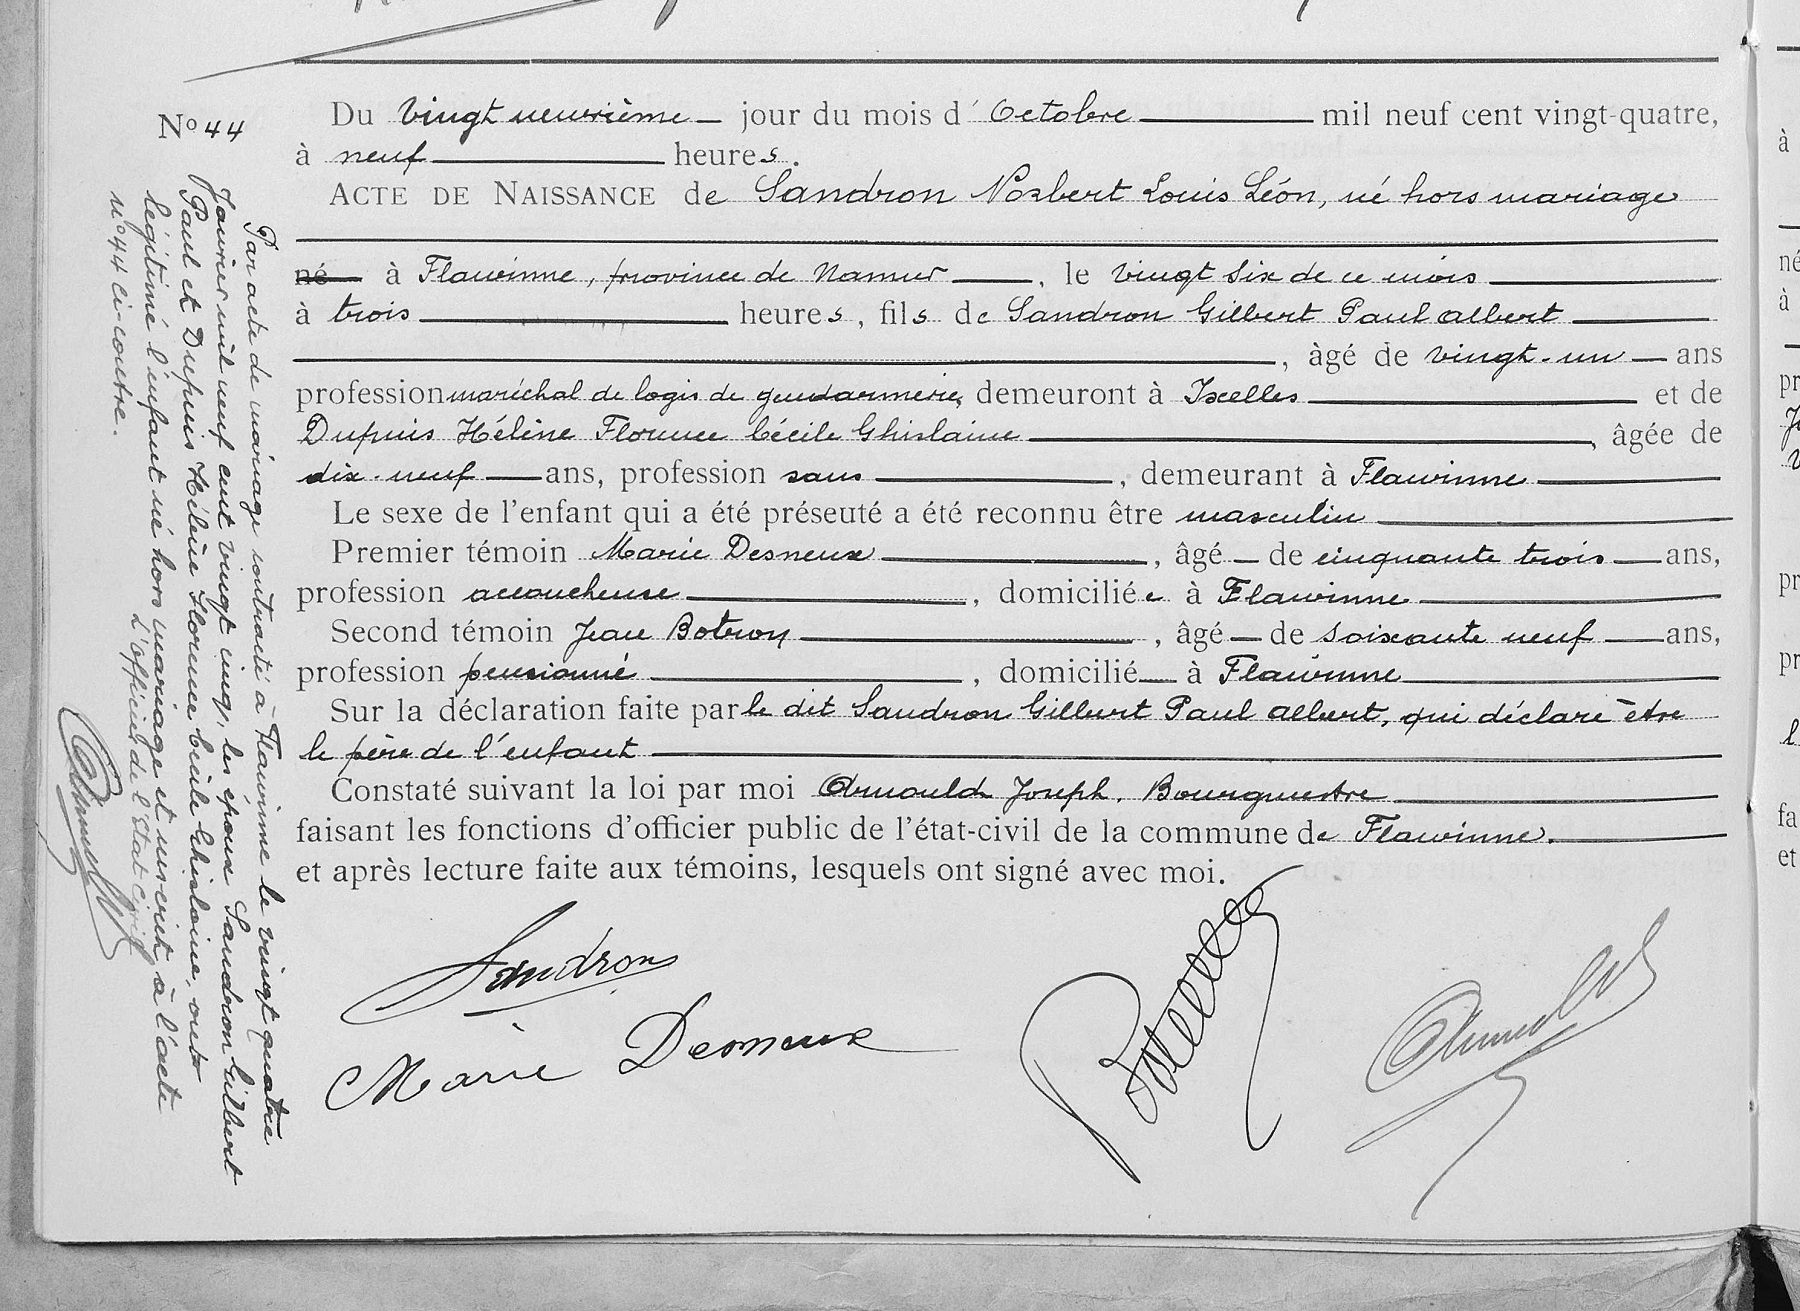 Nº 44
Du vingt neuvième jour du mois d' Octobre mil neuf cent vingt-quatre,
à neuf heures.
ACTE DE NAISSANCE de Sandron Norbert Louis Léon, né hors mariage
né à Flawinne, province de Namur, le vingt six de ce mois
à trois heures, fils de Sandron Gilbert Paul Albert
, âgé de vingt-un ans
profession maréchal de logis de gendarmerie, demeuront à Ixelles et de
Dupuis Hélène Florence Cécile Ghislaine, âgée de
dix-neuf ans, profession sans, demeurant à Flawinne
Le sexe de l'enfant qui a été préseuté a été reconnu être masculin
Premier témoin Marie Desneux, âgé de cinquante trois ans,
profession accoucheuse, domiciliée à Flawinne
Second témoin Jean Botron, âgé de soixante neuf ans,
profession pensionné, domicilié à Flawinne
Sur la déclaration faite par le dit Sandron Gilbert Paul Albert, qui déclare être
le père de l'enfant
Constaté suivant la loi par moi Arnould Joseph, Bourgmestre
faisant les fonctions d'officier public de l'état-civil de la commune de Flawinne.
et après lecture faite aux témoins, lesquels ont signé avec moi.
Sandron
Marie Desneux
Arnould
Par acte de mariage contracté à Flawinne le vingt quatre
Janvier mil neuf cent vingt cinq, les époux Sandron Gilbert
Paul et Dupuis Hélène Florence Cécile Ghislaine, ont
légitimé l'enfant né hors mariage et inscrit à l'acte
nº 44 ci-contre.
L'officier de l'Etat civil
Arnould